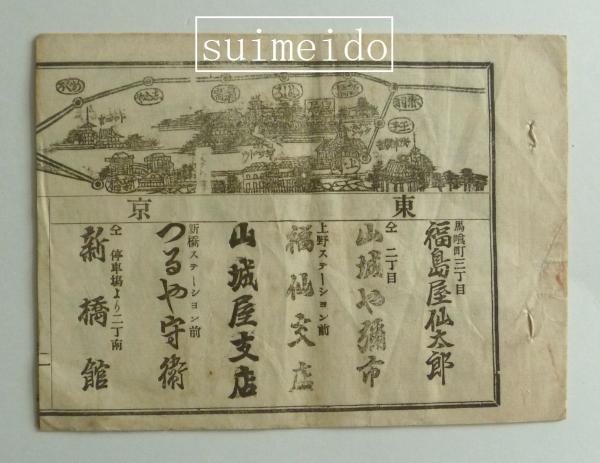 suimeido
東京
馬喰町三丁目
福島屋仙太郎
仝 二丁目
山城や彌市
上野ステーション前
福仙支店
山城屋支店
新橋ステーション前
つるや守衛
仝 停車場より二丁南
新橋館